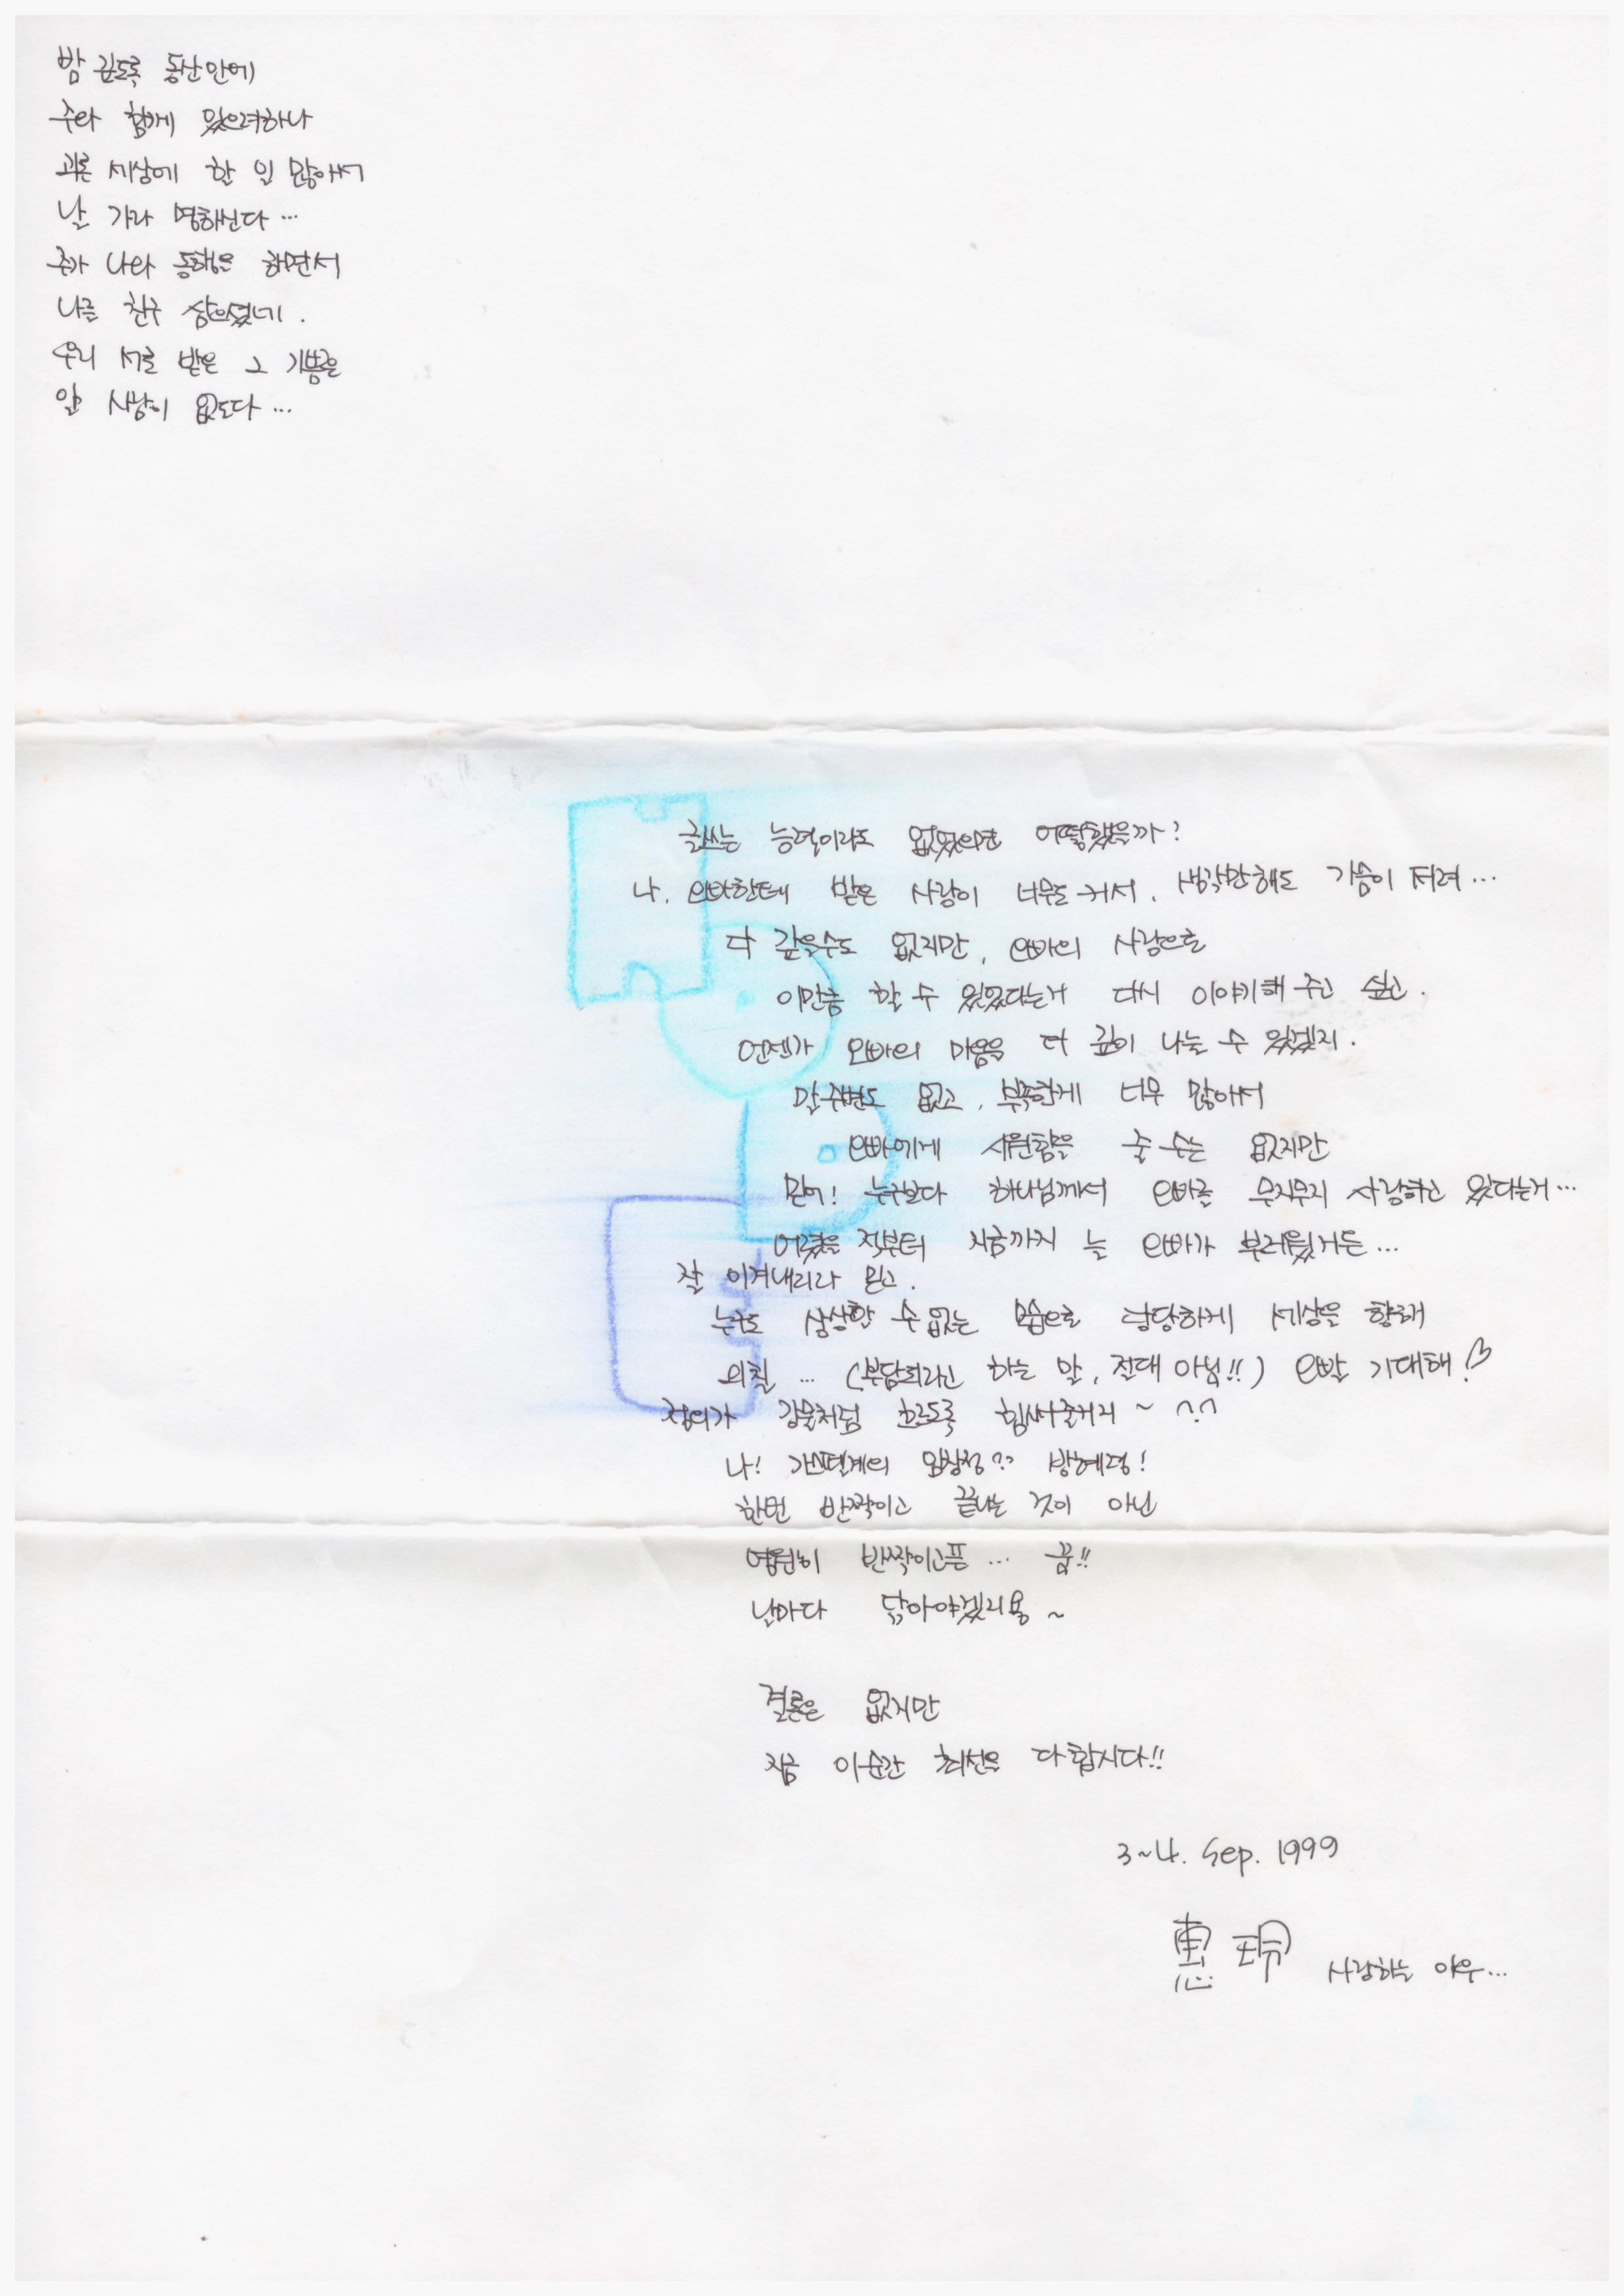 밤 깊도록 동산안에
주와 함께 있으려하나
괴론 세상에 할 일 많아서
날 가라 명하신다 …
주가 나와 동행을 하면서
나를 친구 삼으셨네 .
우리 서로 받은 그 기쁨은
알 사람이 없도다 …
글쓰는 능력이라도 없었으면 어떡했을까?
나. 오빠한테 받은 사랑이 너무도 커서. 생각만해도 가슴이 저려 …
다 갚을수도 없지만, 오빠의 사랑으로
이만큼 할 수 있었다는거 다시 이야기해 주고 싶고.
언젠가 오빠의 마음을 더 깊이 나눌 수 있겠지.
말주변도 없고, 부족한게 너무 많아서
오빠에게 시원함을 줄 수는 없지만
믿어! 누구보다 하나님께서 오빠를 무지무지 사랑하고 있다는거 …
어렸을 적부터 지금까지 늘 오빠가 부러웠거든 …
잘 이겨내리라 믿고.
누구도 상상할 수 없는 모습으로 당당하게 세상을 향해
외칠 … (부담되라고 하는 말, 절대 아님!!) 오빨 기대해!♡
정의가 강물처럼 흐르도록 힘써줄거지 ~ ^.^
나! 가스펠계의 임창정?? 방혜령!
한번 반짝이고 끝나는 것이 아닌
영원히 반짝이고픈 … 꿈!!
날마다 닦아야겠지용 ~
결론은 없지만
지금 이순간 최선을 다합시다!!
3~4. Sep. 1999
惠玲 사랑하는 아우 …